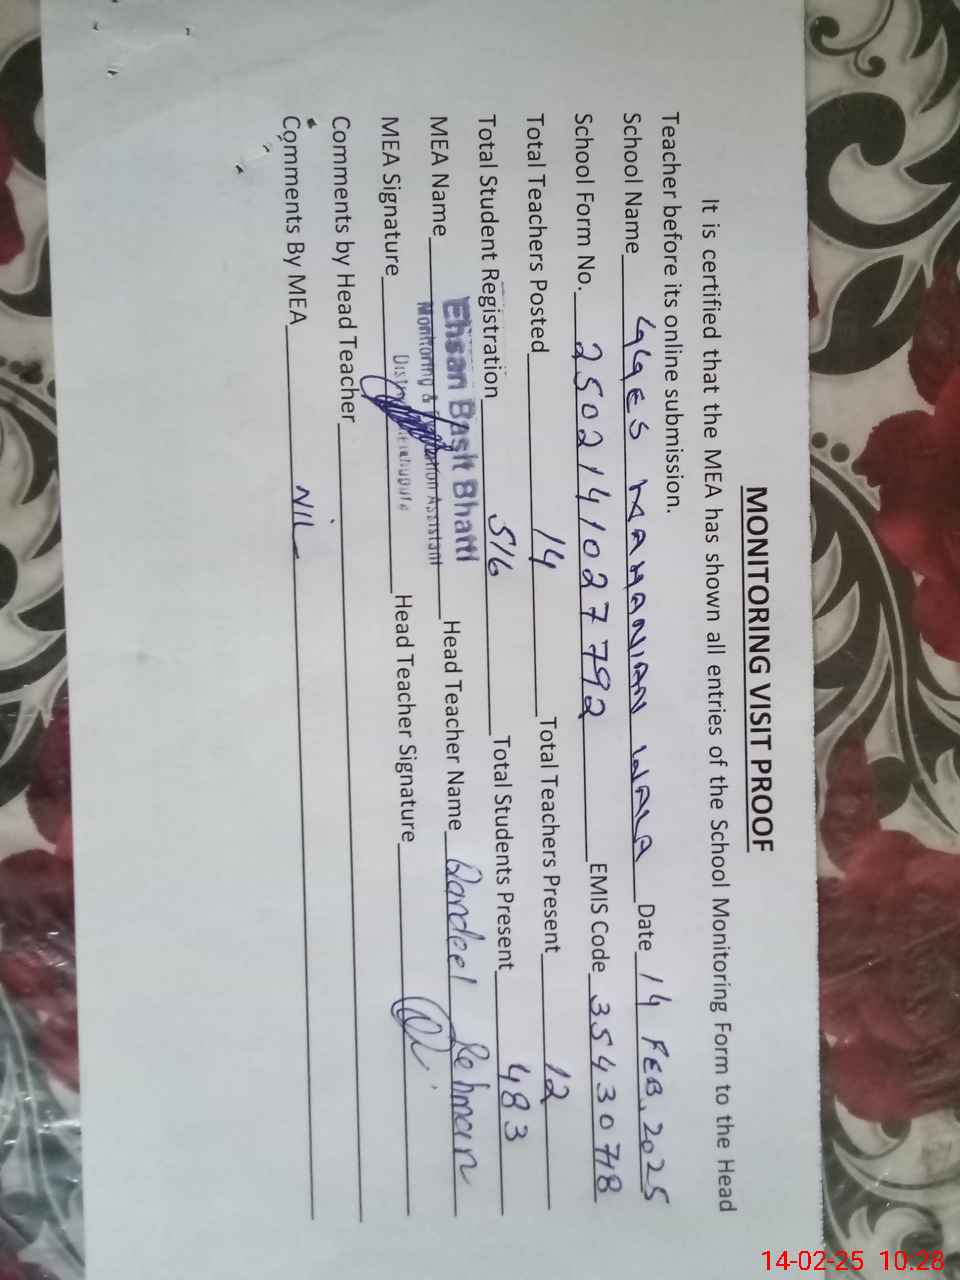 MONITORING VISIT PROOF
It is certified that the MEA has shown all entries of the School Monitoring Form to the Head
Teacher before its online submission.
School Name GGES MAHANIAN WALA Date 14 FEB, 2025
School Form No. 2502141027792 EMIS Code 35430718
Total Teachers Posted 14 Total Teachers Present 12
Total Student Registration 516 Total Students Present 483
MEA Name Ehsan Basit Bhatti Head Teacher Name Qandeel Rehman
Monitoring & Assistant
MEA Signature Head Teacher Signature
Comments by Head Teacher
Comments By MEA NIL
14-02-25 10:28